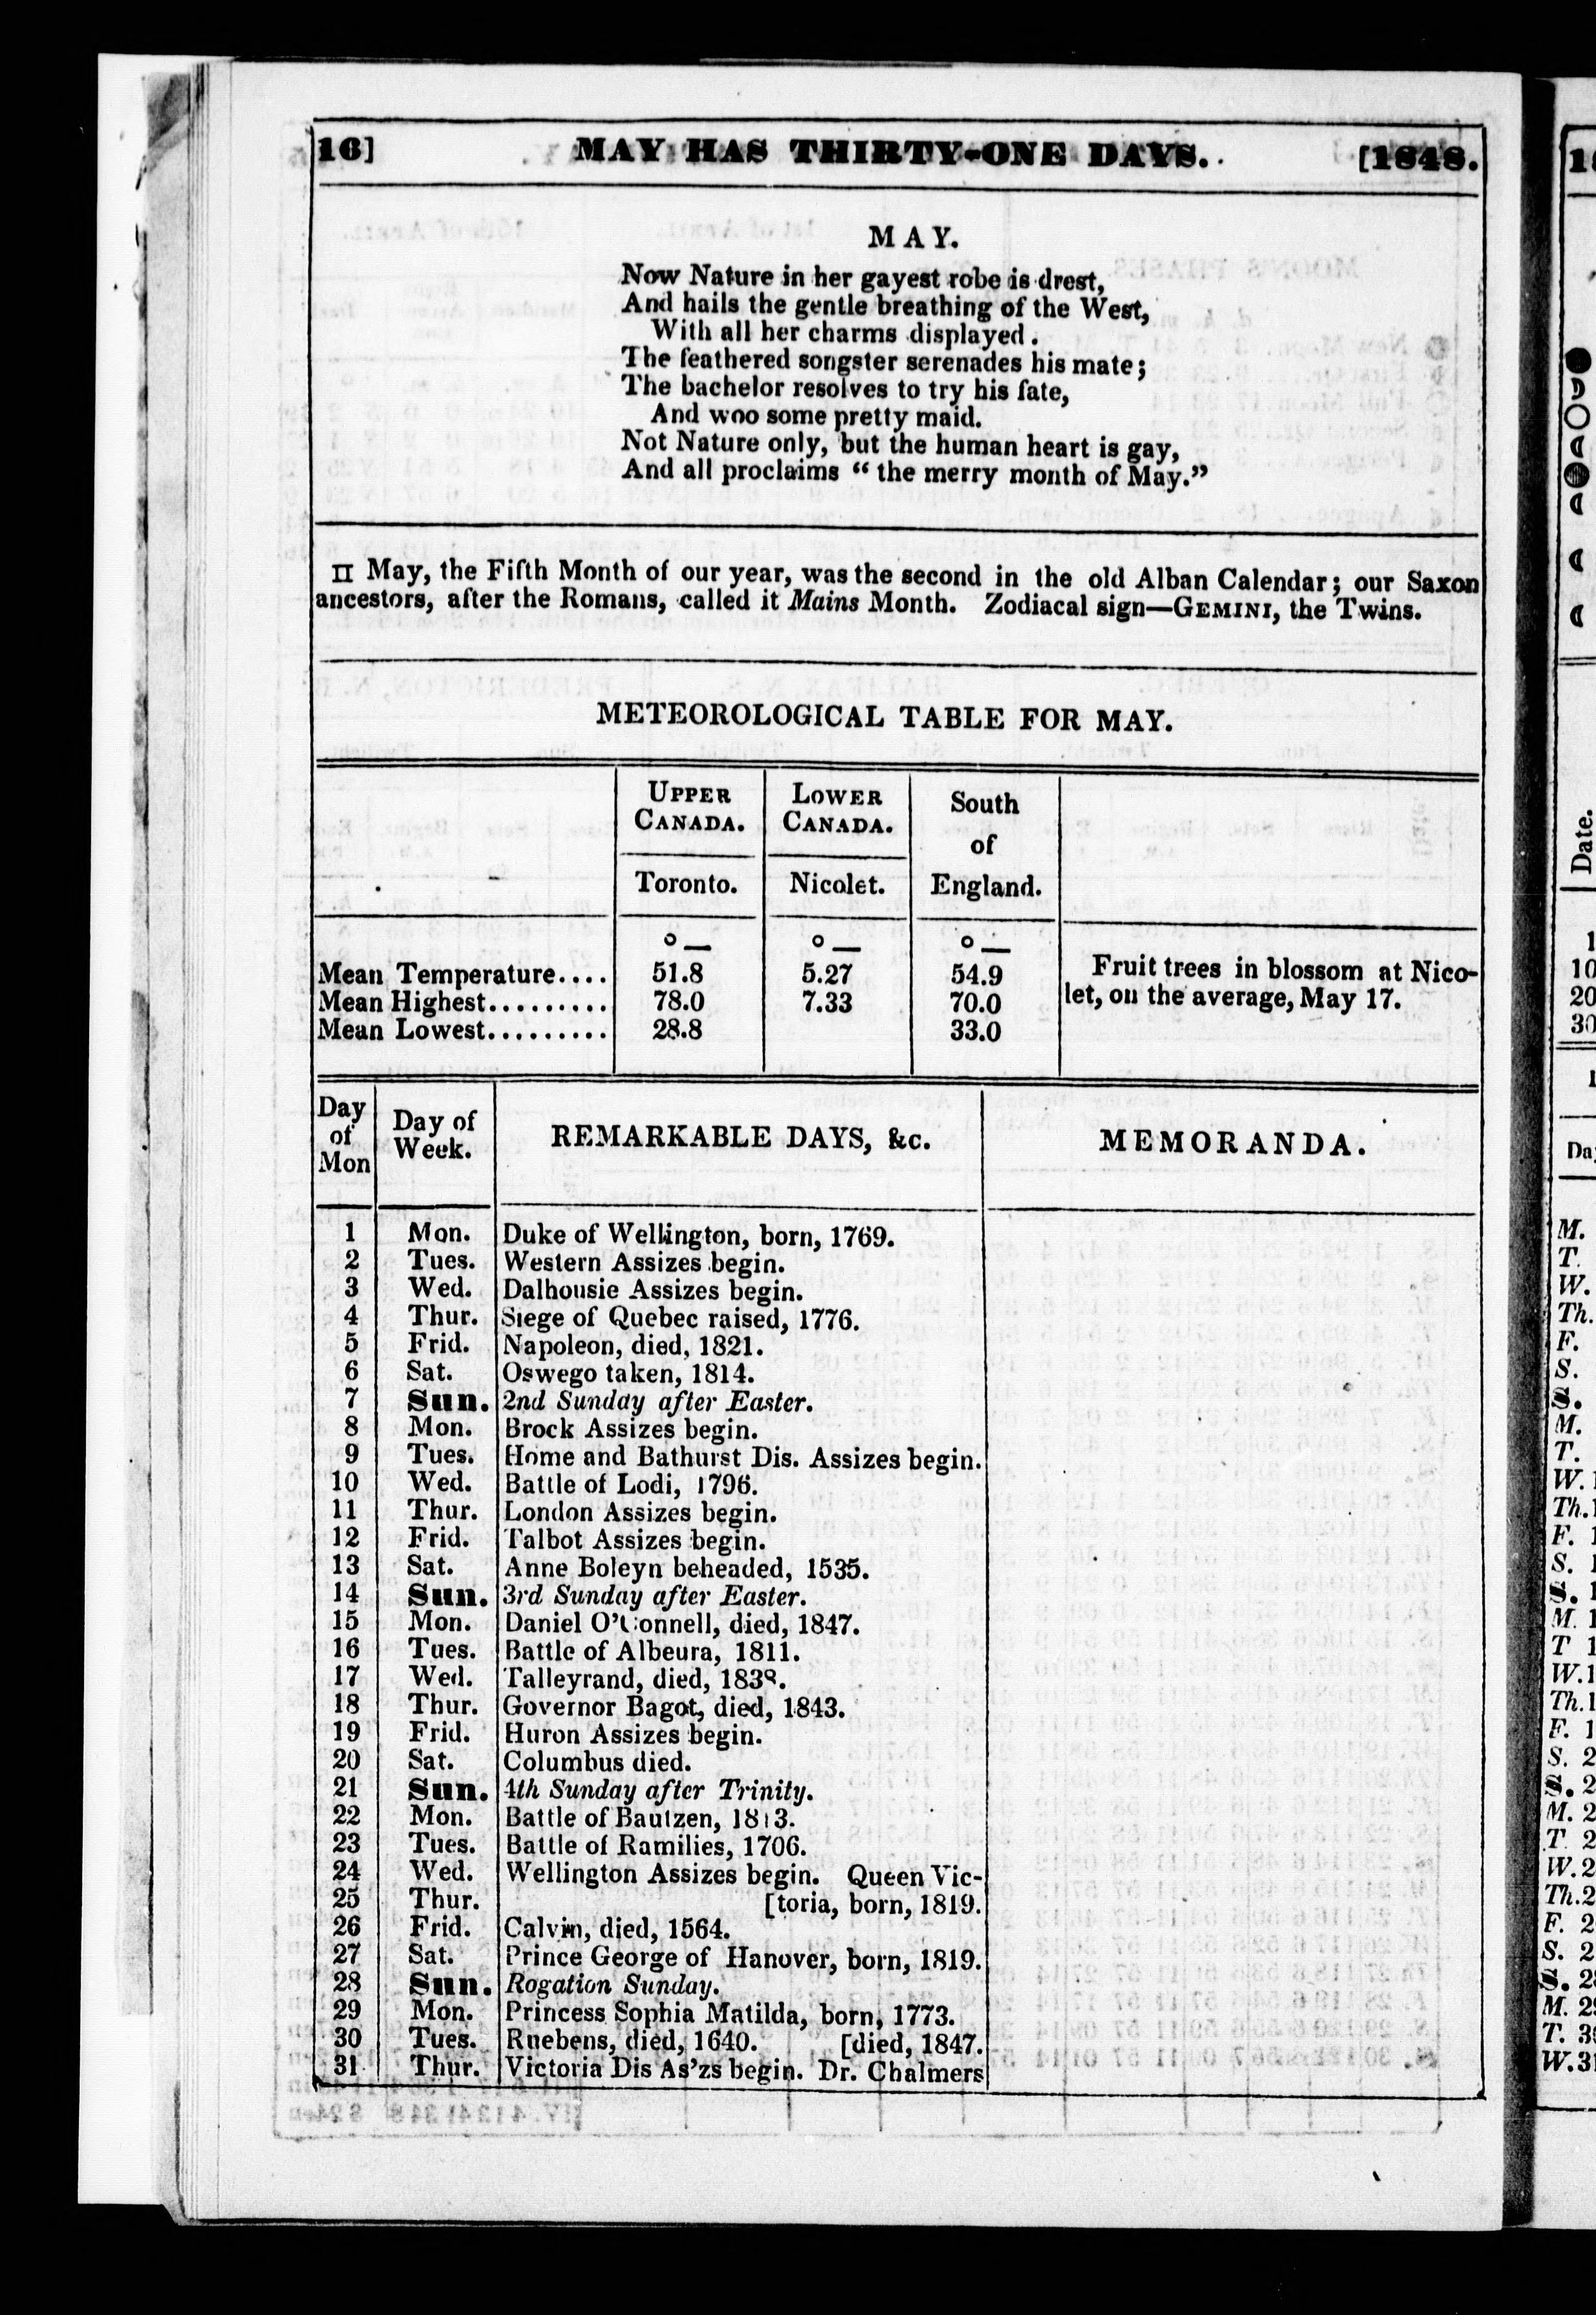 16] MAY HAS THIRTY-ONE DAYS. [1848.
MAY.
Now Nature in her gayest robe is drest,
And hails the gentle breathing of the West,
With all her charms displayed.
The feathered songster serenades his mate;
The bachelor resolves to try his fate,
And woo some pretty maid.
Not Nature only, but the human heart is gay,
And all proclaims “ the merry month of May.”
♊ May, the Fifth Month of our year, was the second in the old Alban Calendar; our Saxon
ancestors, after the Romans, called it Mains Month. Zodiacal sign—GEMINI, the Twins.
METEOROLOGICAL TABLE FOR MAY.
UPPER CANADA. LOWER CANADA. South of England.
Toronto. Nicolet.
° — ° — ° —
Mean Temperature.... 51.8 5.27 54.9 Fruit trees in blossom at Nico-
Mean Highest.......... 78.0 7.33 70.0 let, on the average, May 17.
Mean Lowest.......... 28.8 33.0
Day of Mon Day of Week. REMARKABLE DAYS, &c. MEMORANDA.
1 Mon. Duke of Wellington, born, 1769.
2 Tues. Western Assizes begin.
3 Wed. Dalhousie Assizes begin.
4 Thur. Siege of Quebec raised, 1776.
5 Frid. Napoleon, died, 1821.
6 Sat. Oswego taken, 1814.
7 Sun. 2nd Sunday after Easter.
8 Mon. Brock Assizes begin.
9 Tues. Home and Bathurst Dis. Assizes begin.
10 Wed. Battle of Lodi, 1796.
11 Thur. London Assizes begin.
12 Frid. Talbot Assizes begin.
13 Sat. Anne Boleyn beheaded, 1535.
14 Sun. 3rd Sunday after Easter.
15 Mon. Daniel O'Connell, died, 1847.
16 Tues. Battle of Albeura, 1811.
17 Wed. Talleyrand, died, 1838.
18 Thur. Governor Bagot, died, 1843.
19 Frid. Huron Assizes begin.
20 Sat. Columbus died.
21 Sun. 4th Sunday after Trinity.
22 Mon. Battle of Bautzen, 1813.
23 Tues. Battle of Ramilies, 1706.
24 Wed. Wellington Assizes begin. Queen Vic-
25 Thur. [toria, born, 1819.
26 Frid. Calvin, died, 1564.
27 Sat. Prince George of Hanover, born, 1819.
28 Sun. Rogation Sunday.
29 Mon. Princess Sophia Matilda, born, 1773.
30 Tues. Ruebens, died, 1640. [died, 1847.
31 Thur. Victoria Dis As'zs begin. Dr. Chalmers
Date.
1
10
20
30
M.
T.
W.
Th.
F.
S.
S.
M.
T.
W.
Th.
F.
S.
S.
M.
T
W.
Th.
F.
S.
S.
M.
T.
W.
Th.
F.
S.
S.
M.
T.
W.